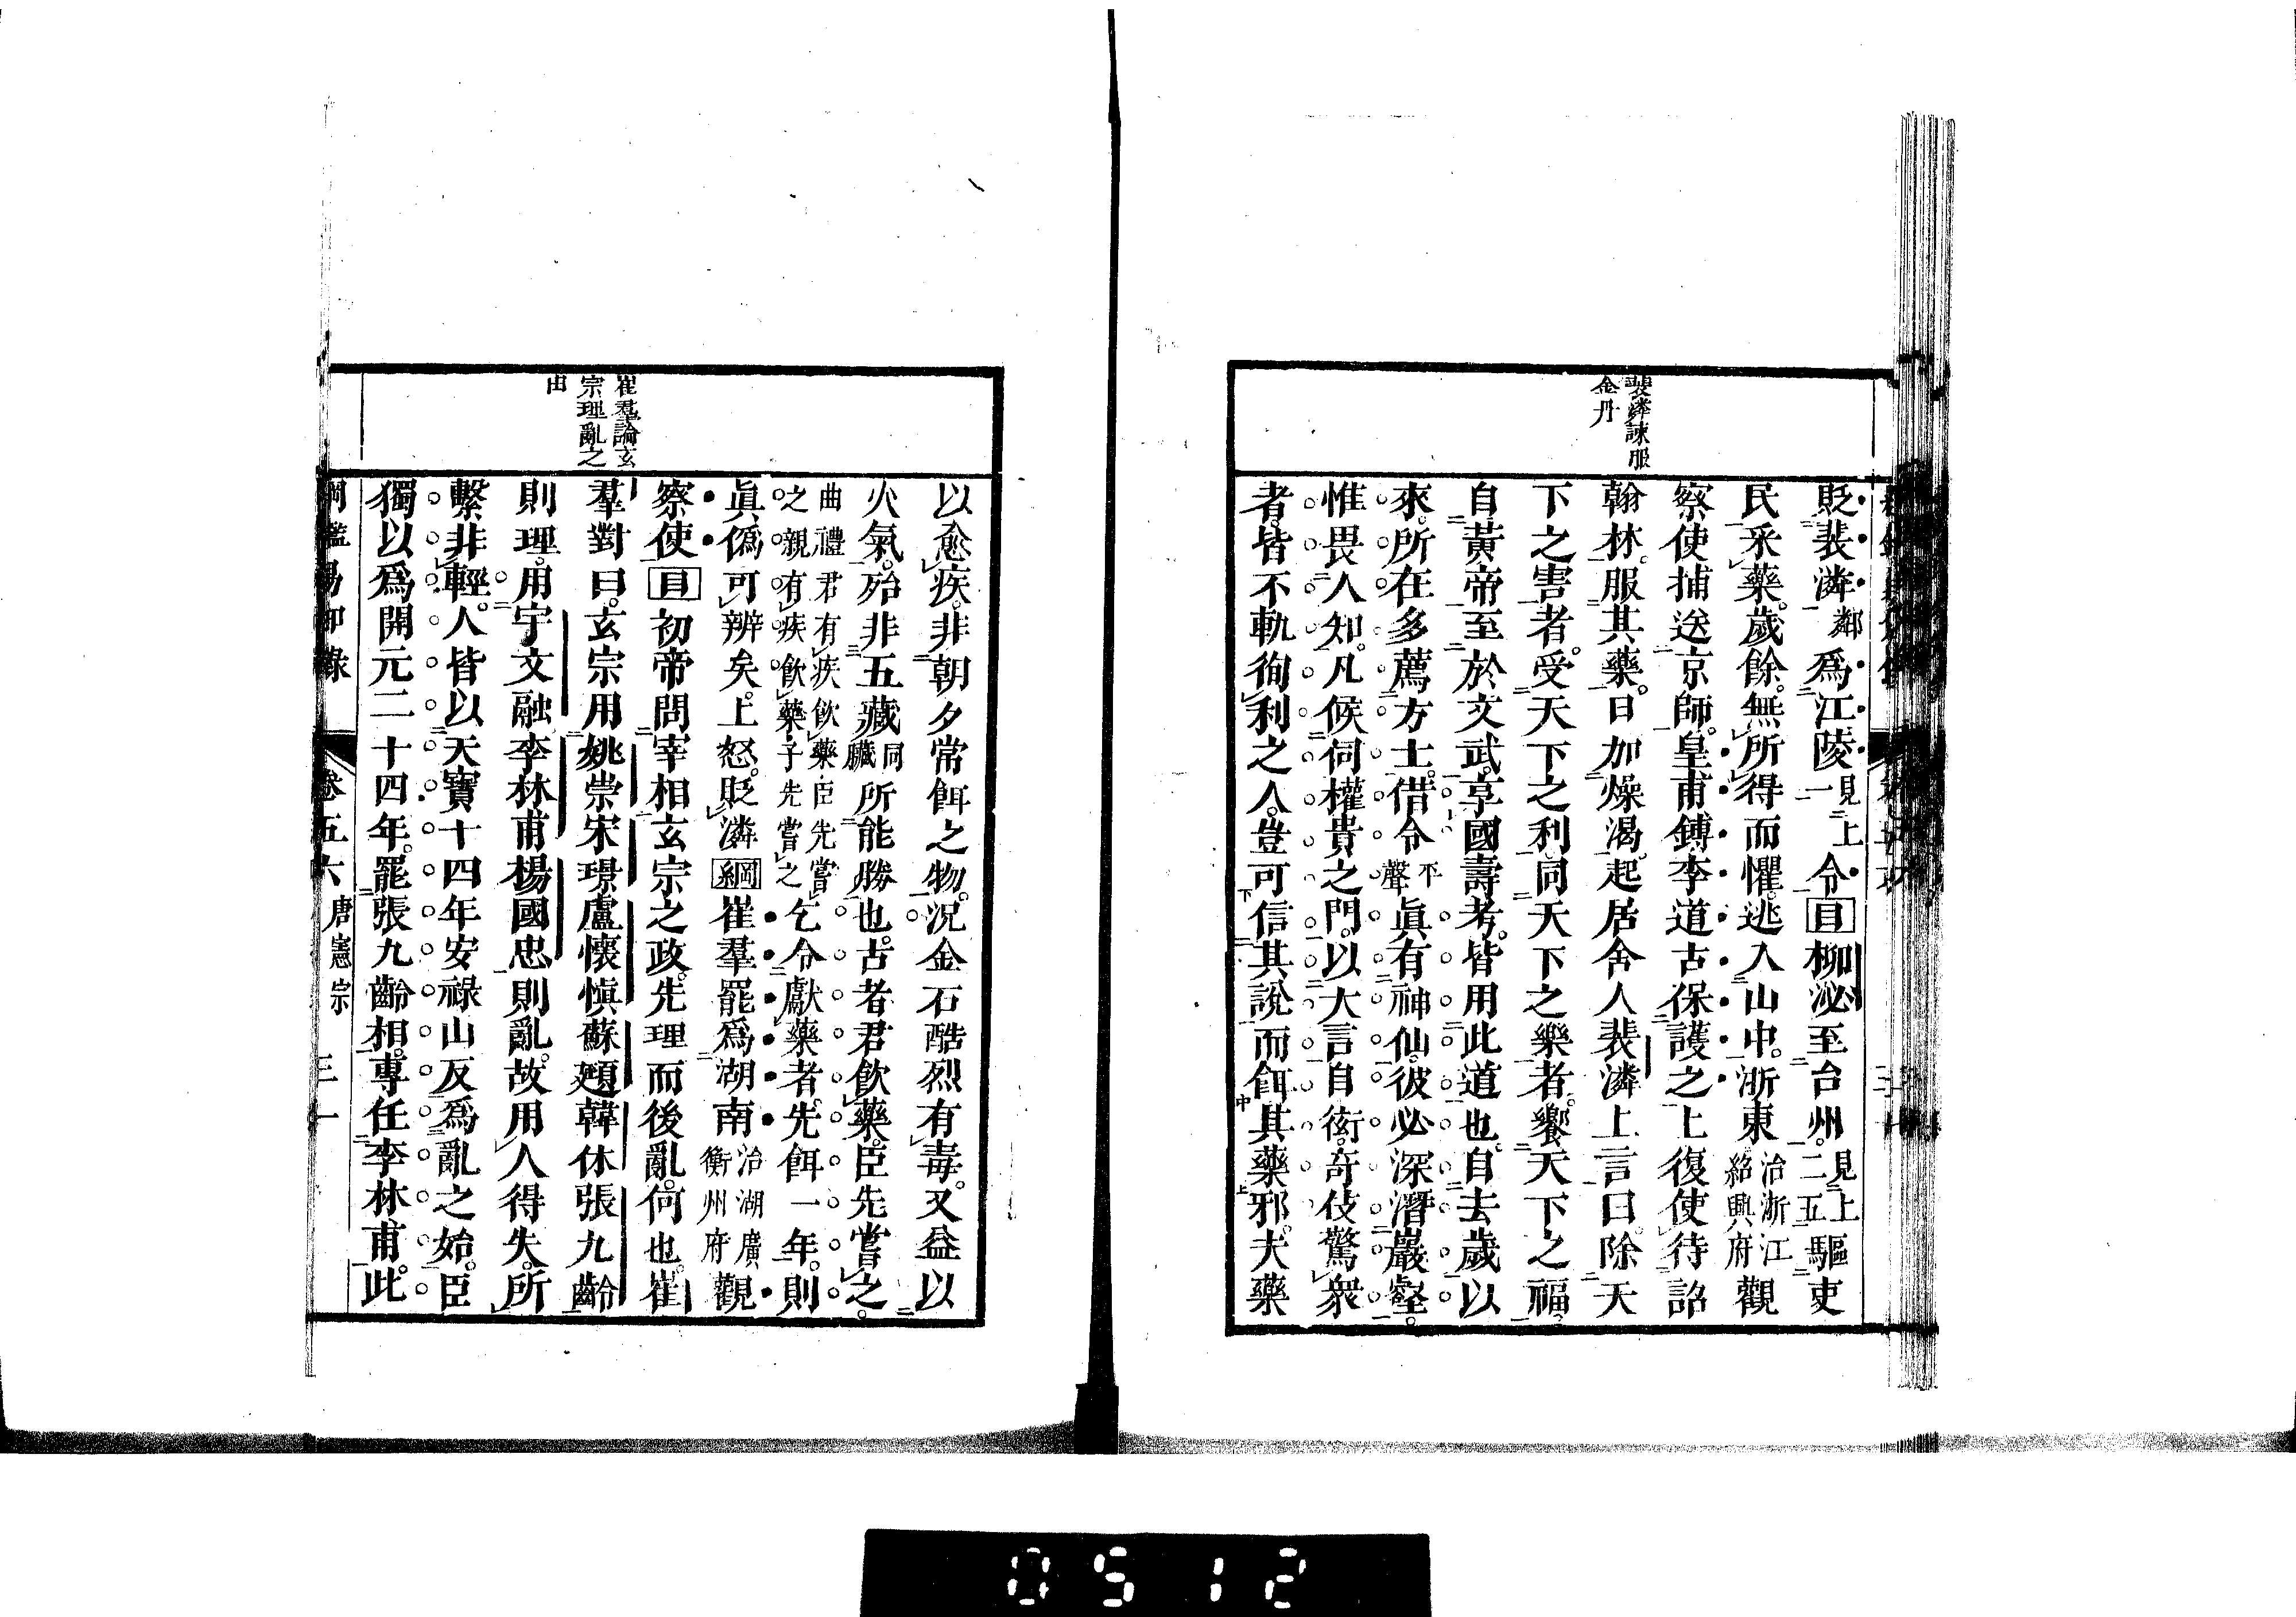 裴潾諫服
金丹
貶裴潾鄰爲江陵見上一令目柳泌至台州見上二五驅吏
民采藥。歲餘。無所得而懼。逃入山中。浙東治浙江紹興府觀
察使捕送京師。皇甫鎛李道古保護之上復使待詔
翰林。服其藥。日加燥渴。起居舍人裴潾上言曰。除天
下之害者。受天下之利。同天下之樂者。饗天下之福。
自黃帝至於文武。享國壽考。皆用此道也。自去歲以
來。所在多薦方士。借令平聲眞有神仙。彼必深潛巖壑。
惟畏人知。凡候伺權貴之門。以大言自衒。奇伎驚衆
者。皆不軌徇利之人。豈可信其說而餌其藥邪。夫藥
以愈疾。非朝夕常餌之物。況金石酷烈有毒。又益以
火氣。殆非五藏同臟所能勝也。古者君飲藥。臣先嘗之。
曲禮君有疾飲藥臣先嘗之親有疾飲藥子先嘗之乞令獻藥者。先餌一年。則
眞僞可辨矣。上怒。貶潾綱崔羣罷爲湖南治湖廣衡州府觀
察使目初帝問宰相玄宗之政。先理而後亂。何也。崔
羣對曰。玄宗用姚崇宋璟盧懷愼蘇頲韓休張九齡
則理。用宇文融李林甫楊國忠則亂。故用人得失。所
繫非輕。人皆以天寶十四年安祿山反爲亂之始。臣
獨以爲開元二十四年。罷張九齡相。專任李林甫。此
崔羣論玄
宗理亂之
由
綱鑑易知錄 卷五六 唐憲宗 三一
0512